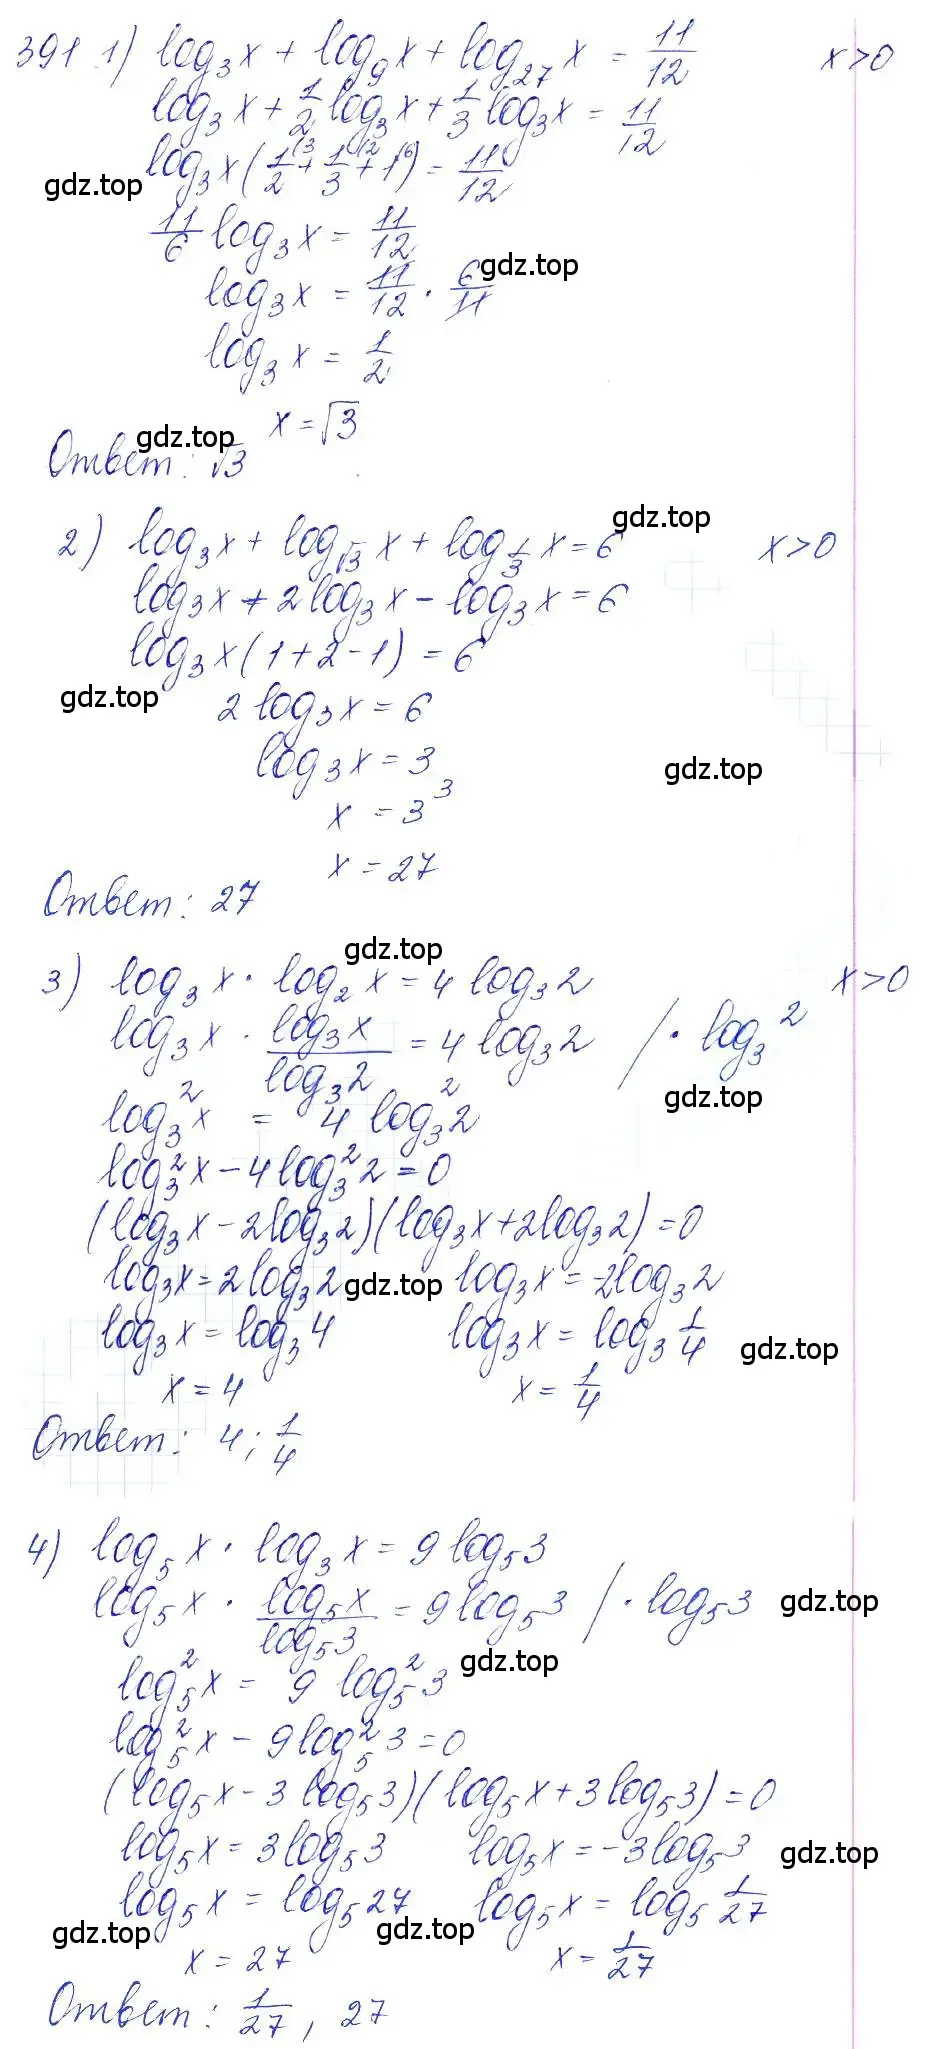 391 1) log₃x + log₉x + log₂₇x = 11/12 x>0
log₃x + 1/2 log₃x + 1/3 log₃x = 11/12
log₃x (1/2⁽³ + 1/3⁽² + 1⁽⁶) = 11/12
gdz.top
11/6 log₃x = 11/12
log₃x = 11/12 · 6/11
gdz.top
log₃x = 1/2
x = √3
gdz.top
Ответ: √3
gdz.top
2) log₃x + log_√3 x + log_1/3 x = 6 x>0
log₃x + 2log₃x − log₃x = 6
log₃x (1+2−1) = 6
gdz.top
2 log₃x = 6
log₃x = 3
gdz.top
x = 3³
x = 27
Ответ: 27
gdz.top
3) log₃x · log₂x = 4 log₃2 x>0
log₃x · log₃x/log₃2 = 4 log₃2 / · log₃2
gdz.top
log₃²x = 4 log₃²2
log₃²x − 4log₃²2 = 0
(log₃x − 2log₃2)(log₃x + 2log₃2) = 0
log₃x = 2log₃2 gdz.top log₃x = −2log₃2
log₃x = log₃4 log₃x = log₃ 1/4
gdz.top
x = 4 x = 1/4
Ответ: 4; 1/4
4) log₅x · log₃x = 9 log₅3
log₅x · log₅x/log₅3 = 9log₅3 / · log₅3 gdz.top
log₅²x = 9 log₅²3
gdz.top
log₅²x − 9log₅²3 = 0
(log₅x − 3log₅3)(log₅x + 3log₅3) = 0
log₅x = 3log₅3 log₅x = −3log₅3 gdz.top
log₅x = log₅27 log₅x = log₅ 1/27
gdz.top gdz.top
x = 27 x = 1/27
Ответ: 1/27, 27